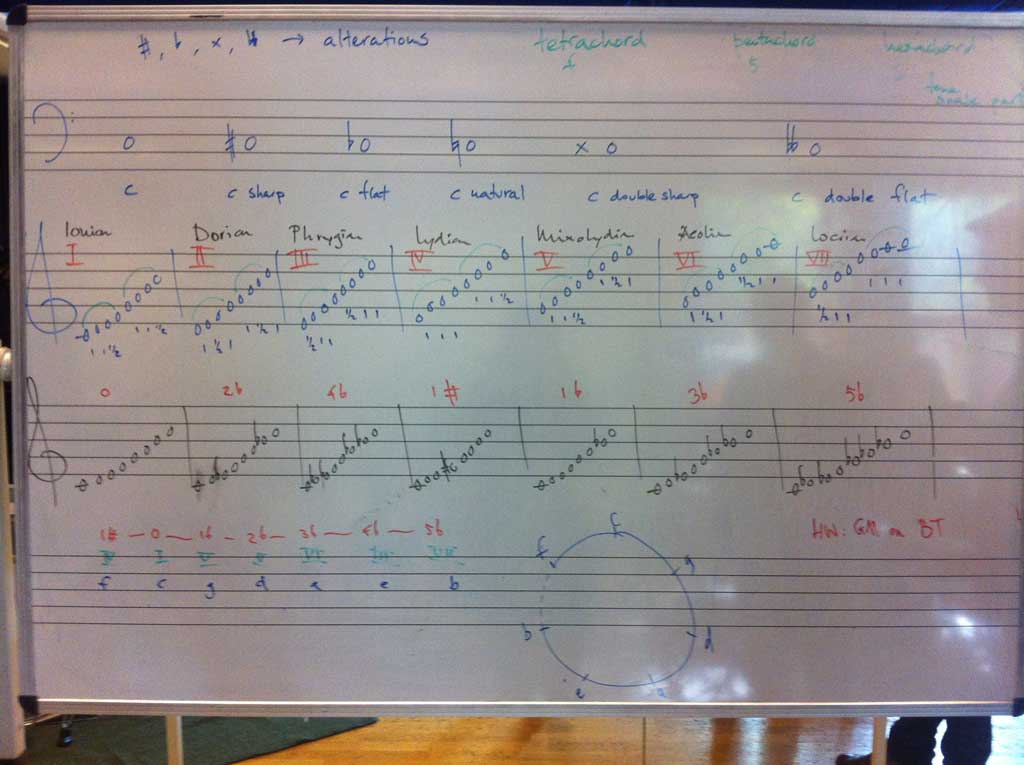 ♯, ♭, x, ♭♭ → alterations tetrachord pentachord hexachord
4 5
tone
scale part
c c sharp c flat c natural c double sharp c double flat
Ionian Dorian Phrygian Lydian Mixolydian Aeolian Locrian
I II III IV V VI VII
1 1 ½ 1 1 ½ 1 ½ 1 1 ½ 1 ½ 1 1 ½ 1 1 1 1 1 1 1 ½ 1 1 ½ 1 ½ 1 1 ½ 1 ½ 1 1 ½ 1 1 1 1 1
0 2♭ 4♭ 1♯ 1♭ 3♭ 5♭
1♯ — 0 — 1♭ - 2♭ - 3♭ — 4♭ — 5♭
IV I V II VI III VII
f c g d a e b
f f g d a e b
HW: GM on BT